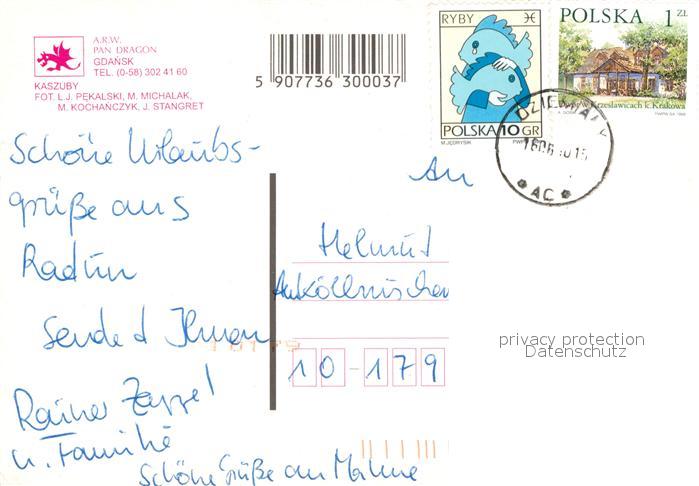 A.R.W.
PAN DRAGON
GDAŃSK
TEL. (0-58) 302 41 60
KASZUBY
FOT. L.J. PĘKALSKI, M. MICHALAK,
M. KOCHAŃCZYK, J. STANGRET
5 907736 300037
RYBY
POLSKA 10 GR
M.JĘDRYSIK
POLSKA 1 ZŁ
Dwór w Krzesławicach k. Krakowa
AC
Schöne Urlaubs-
grüße aus
Radun
sendet Ihnen
Rainer Zeppel
u. Familie
Schöne Grüße an
An
Helmut
10-179
privacy protection
Datenschutz